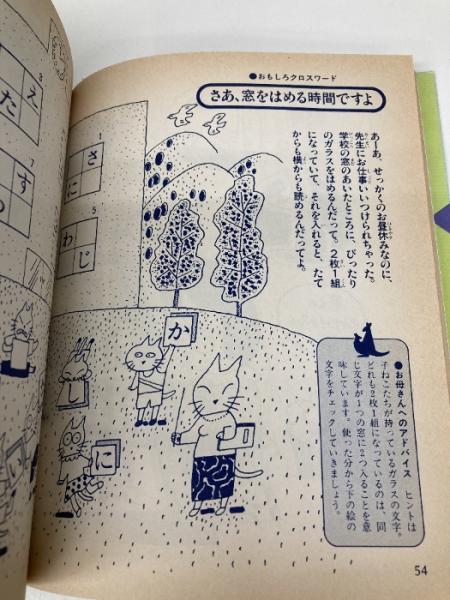 ●おもしろクロスワード
さあ、窓をはめる時間ですよ
あーあ、せっかくのお昼休みなのに、
先生にお仕事いいつけられちゃった。
学校の窓のあいたところに、ぴったり
のガラスをはめるんだって。2枚1組
になっていて、それを入れると、たて
からも横からも読めるんだってよ。
●お母さんへのアドバイス ヒントは
子ねこたちが持っているガラスの文字。
どれも2枚1組になっているのは、同
じ文字が1つの窓に2つ入ることを意
味しています。使った分から下の絵の
文字をチェックしていきましょう。
3
え
た
す
の
1
さ
に
5
わ じ
か
し
に
い
54